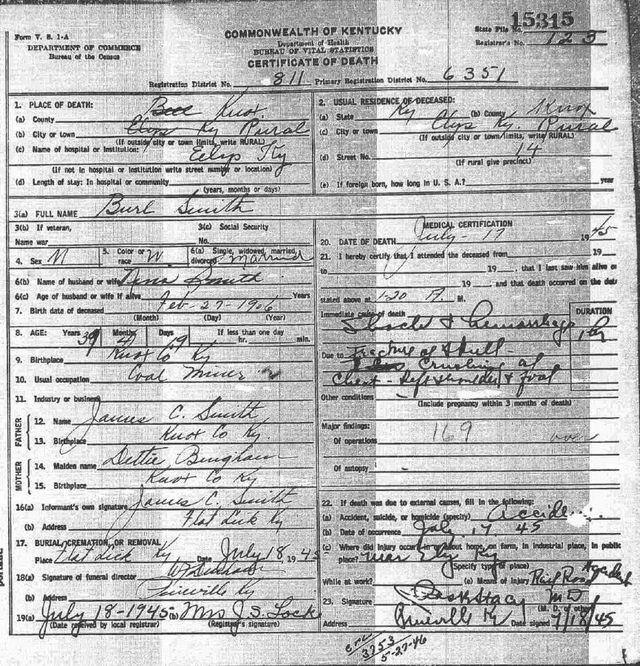 15315
Form V. S. 1-A
COMMONWEALTH OF KENTUCKY
State File No.
DEPARTMENT OF COMMERCE
Department of Health
Registrar's No. 123
Bureau of the Census
BUREAU OF VITAL STATISTICS
CERTIFICATE OF DEATH
Registration District No. 811 Primary Registration District No. 6351
1. PLACE OF DEATH:
(a) County Knox
(b) City or town Elys Ky Rural
(If outside city or town limits, write RURAL)
(c) Name of hospital or institution: Ky
(If not in hospital or institution write street number or location)
(d) Length of stay: In hospital or community
(years, months or days)
2. USUAL RESIDENCE OF DECEASED:
(a) State Ky (b) County Knox
(c) City or town Elys Ky Rural
(If outside city or town limits, write RURAL)
(d) Street No. 14
(If rural give precinct)
(e) If foreign born, how long in U. S. A.? year
3(a) FULL NAME Burl Smith
3(b) If veteran, 3(c) Social Security
Name war No.
4. Sex M 5. Color or race W 6(a) Single, widowed, married, divorced Married
6(b) Name of husband or wife Smith
6(c) Age of husband or wife if alive Years
7. Birth date of deceased Feb-27-1906
(Month) (Day) (Year)
8. AGE: Years 39 Months 4 Days 19 If less than one day
hr. min.
9. Birthplace Knox Co Ky
10. Usual occupation Coal Miner
11. Industry or business
FATHER
12. Name James C. Smith
13. Birthplace Knox Co Ky.
MOTHER
14. Maiden name Bingham
15. Birthplace Knox Co Ky
16(a) Informant's own signature James C. Smith
(b) Address Flat Lick Ky
17. BURIAL, CREMATION, OR REMOVAL
Place Flat Lick Ky Date July 18, 1945
18(a) Signature of funeral director
(b) Address Pineville Ky
19(a) July 18-1945 (b) Mrs J. S. Lock
(Date received by local registrar) (Registrar's signature)
MEDICAL CERTIFICATION
20. DATE OF DEATH July 17 1945
21. I hereby certify, that I attended the deceased from
19 , to 19 , that I last saw him alive on
19 , and that death occurred on the date
stated above at 1:20 M.
Immediate cause of death DURATION
Shock & hemorrhage 1 hr
Due to Fracture of skull
Crushing of
Chest - Left shoulder & foot
Other conditions
(Include pregnancy within 3 months of death)
Major findings:
Of operations 169 over
Of autopsy
22. If death was due to external causes, fill in the following:
(a) Accident, suicide, or homicide (specify) Accident
(b) Date of occurrence July 17 45
(c) Where did injury occur in or about home, on farm, in industrial place, in public
place? near Ely Ky
(Specify type of place)
While at work? (e) Means of injury Rail Road Accident
23. Signature Stacy MD
(M. D. or other)
Address Pineville Ky Date signed 7/18/45
3753
5-27-46